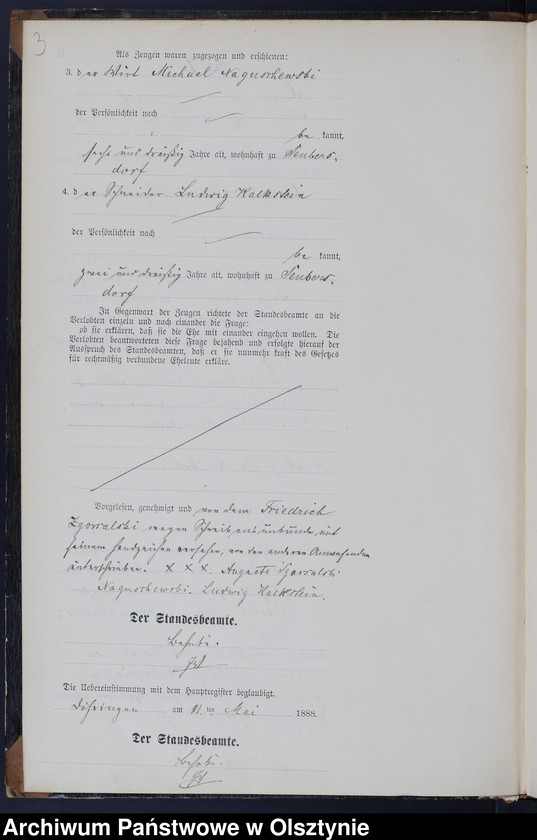 3
Als Zeugen waren zugezogen und erschienen:
3. d er Wirt Michael Naguschewski
der Persönlichkeit nach
be kannt,
sechs und dreißig Jahre alt, wohnhaft zu Seubers-
dorf
4. d er Schneider Ludwig Kalkstein
der Persönlichkeit nach
be kannt,
zwei und dreißig Jahre alt, wohnhaft zu Seubers-
dorf
In Gegenwart der Zeugen richtete der Standesbeamte an die
Verlobten einzeln und nach einander die Frage:
ob sie erklären, daß sie die Ehe mit einander eingehen wollen. Die
Verlobten beantworteten diese Frage bejahend und erfolgte hierauf der
Ausspruch des Standesbeamten, daß er sie nunmehr kraft des Gesetzes
für rechtmäßig verbundene Eheleute erkläre.
Vorgelesen, genehmigt und von dem Friedrich
Zgorralski wegen Schreibensunkunde mit
seinem Handzeichen versehen, von den anderen Anwesenden
unterschrieben. X X X. Auguste
Naguschewski. Ludwig Kalkstein.
Der Standesbeamte.
Die Uebereinstimmung mit dem Hauptregister beglaubigt.
Döhringen am 11. ten Mai 1888.
Der Standesbeamte.
Archiwum Państwowe w Olsztynie